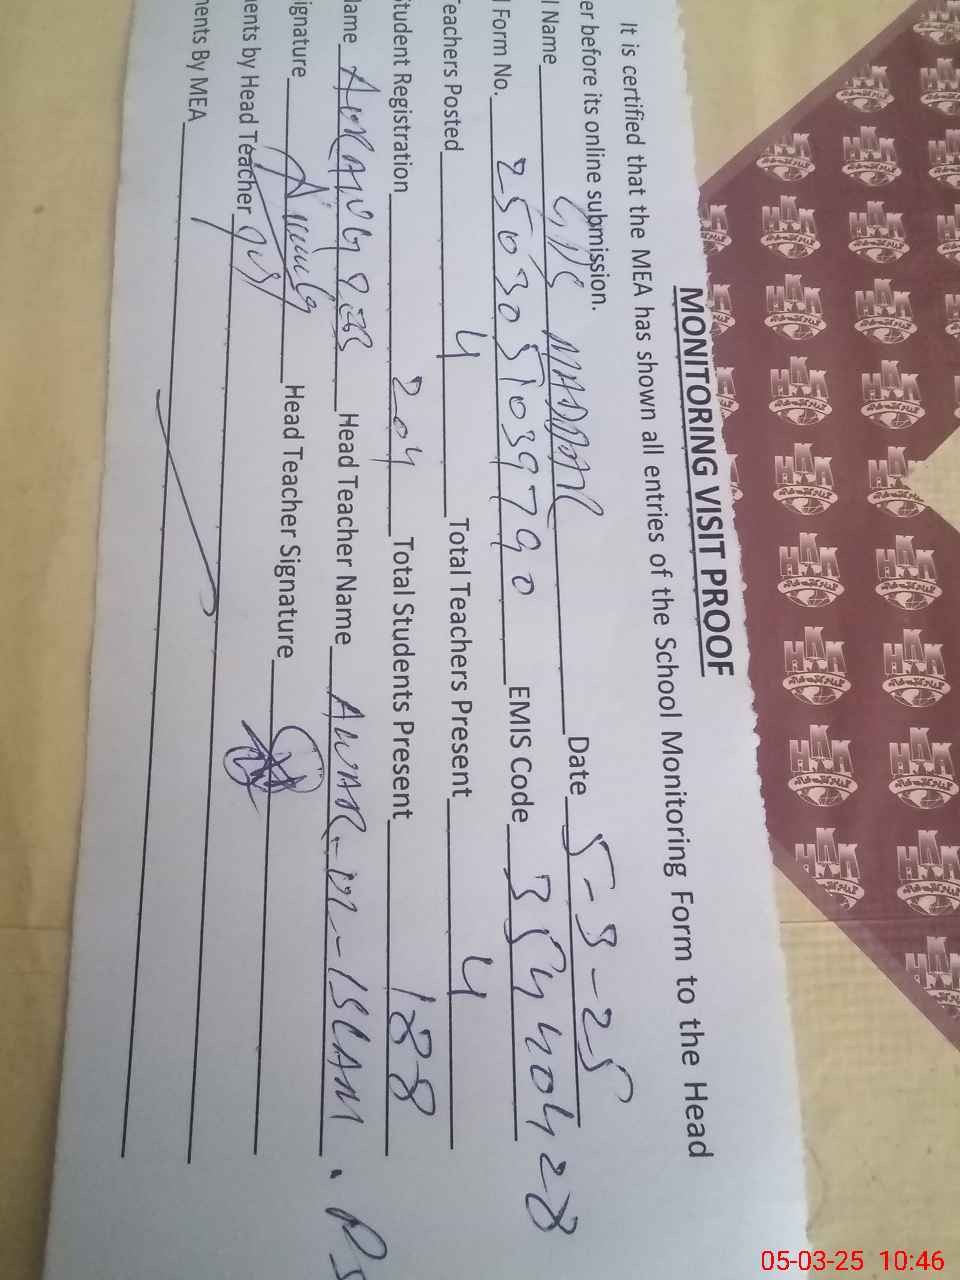 MONITORING VISIT PROOF
It is certified that the MEA has shown all entries of the School Monitoring Form to the Head
er before its online submission.
l Name GPS Date 5-3-25
l Form No. 2503051039790 EMIS Code 35440428
Teachers Posted 4 Total Teachers Present 4
Student Registration 204 Total Students Present 188
Name Head Teacher Name ANWAR-UL-ISLAM.
Signature Head Teacher Signature
ents by Head Teacher
ments By MEA
HKK
05-03-25 10:46